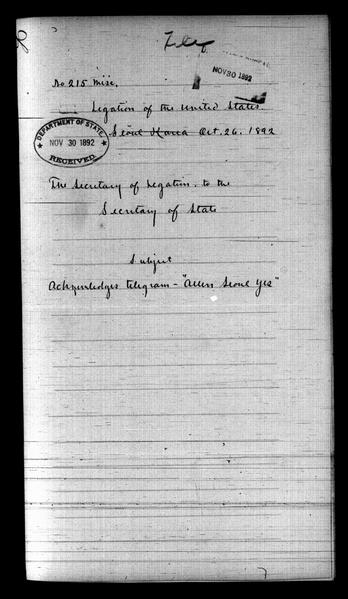 File
NOV 30 1892
No 215 Misc.
Legation of the United States.
Seoul Korea Oct. 26. 1892
DEPARTMENT OF STATE,
NOV 30 1892
RECEIVED
The Secretary of Legation. to the
Secretary of State
Subject
Acknowledges telegram - "Allen Seoul Yes"